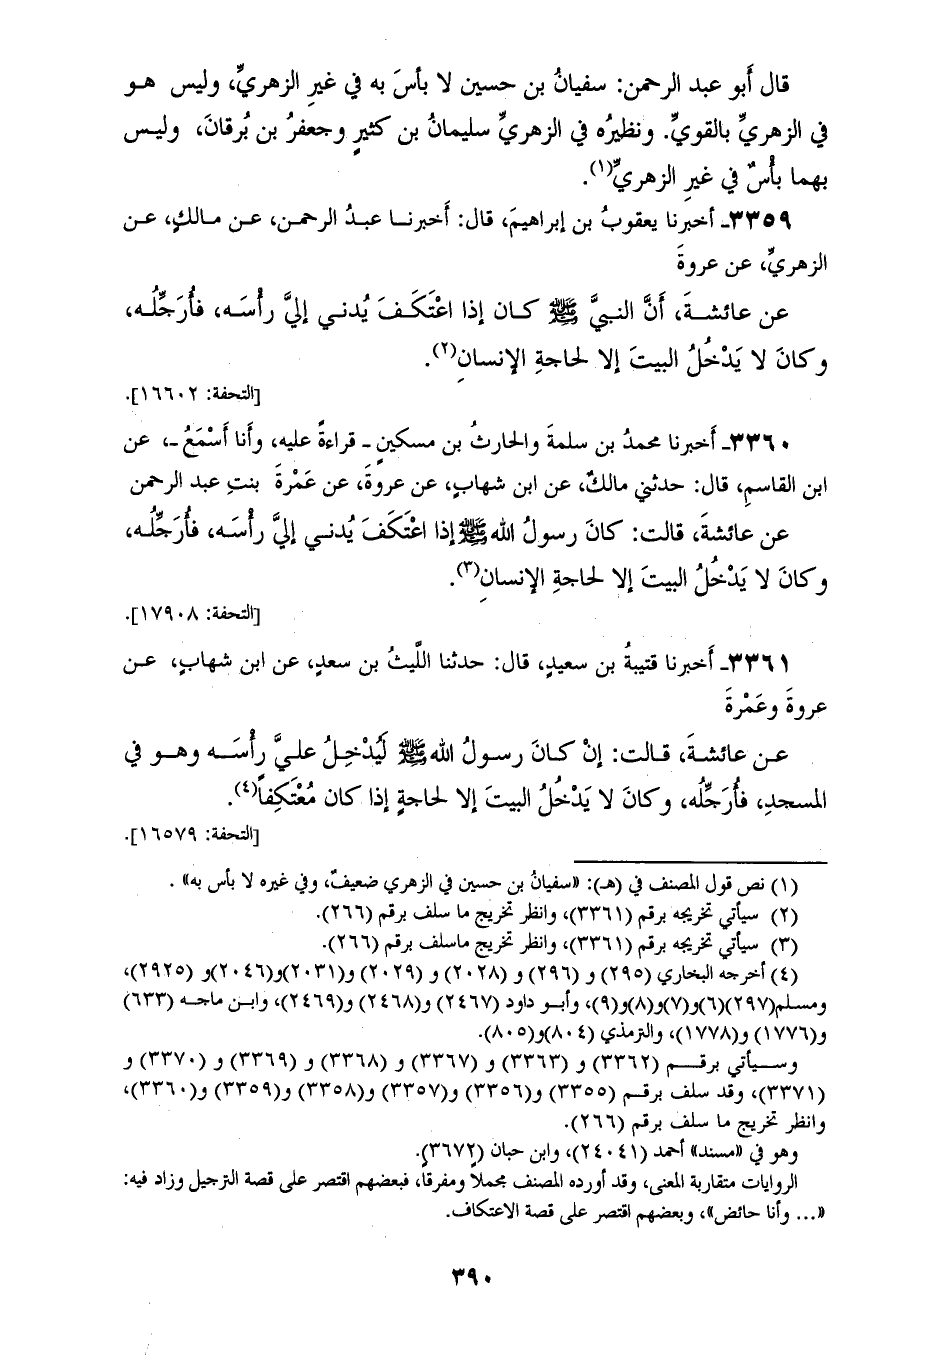 قال أَبو عبد الرحمن: سفيانُ بن حسين لا بأسَ به في غيرِ الزهريِّ، وليس هو
في الزهريِّ بالقويِّ. ونظيرُه في الزهريِّ سليمانُ بن كثيرٍ وجعفرُ بن بُرقانَ، وليس
بهما بأْسٌ في غيرِ الزهريِّ(١).
٣٣٥٩ـ أخبرنا يعقوبُ بن إبراهيمَ، قال: أَخبرنا عبدُ الرحمن، عن مالكٍ، عن
الزهريِّ، عن عروةَ
عن عائشةَ، أَنَّ النبيَّ ﷺ كان إذا اعْتَكَفَ يُدني إليَّ رأْسَه، فأُرَجِّلُه،
وكانَ لا يَدْخُلُ البيتَ إلا لحاجةِ الإنسانِ(٢).
[التحفة: ١٦٦٠٢].
٣٣٦٠ـ أَخبرنا محمدُ بن سلمةَ والحارثُ بن مسكينٍ ـ قراءةً عليه، وأَنا أَسْمَعُ ـ، عن
ابن القاسمِ، قال: حدثني مالكٌ، عن ابن شهابٍ، عن عروةَ، عن عَمْرةَ بنتِ عبد الرحمن
عن عائشةَ، قالت: كانَ رسولُ الله ﷺ إذا اعْتَكَفَ يُدني إليَّ رأْسَه، فأُرَجِّلُه،
وكانَ لا يَدْخُلُ البيتَ إلا لحاجةِ الإنسانِ(٣).
[التحفة: ١٧٩٠٨].
٣٣٦١ـ أَخبرنا قتيبةُ بن سعيدٍ، قال: حدثنا اللَّيثُ بن سعدٍ، عن ابن شهابٍ، عن
عروةَ وعَمْرةَ
عن عائشةَ، قالت: إنْ كانَ رسولُ الله ﷺ لَيُدْخِلُ عليَّ رأْسَه وهو في
المسجدِ، فأُرَجِّلُه، وكانَ لا يَدْخُلُ البيتَ إلا لحاجةٍ إذا كان مُعْتَكِفاً(٤).
[التحفة: ١٦٥٧٩].
(١) نص قول المصنف في (هـ): «سفيانُ بن حسين في الزهري ضعيفٌ، وفي غيره لا بأس به» .
(٢) سيأتي تخريجه برقم (٣٣٦١)، وانظر تخريج ما سلف برقم (٢٦٦).
(٣) سيأتي تخريجه برقم (٣٣٦١)، وانظر تخريج ماسلف برقم (٢٦٦).
(٤) أخرجه البخاري (٢٩٥) و (٢٩٦) و (٢٠٢٨) و (٢٠٢٩) و(٢٠٣١)و(٢٠٤٦)و (٢٩٢٥)،
ومسلم(٢٩٧)(٦)و(٧)و(٨)و(٩)، وأبو داود (٢٤٦٧) و(٢٤٦٨) و(٢٤٦٩)، وابن ماجه (٦٣٣)
و(١٧٧٦) و(١٧٧٨)، والترمذي (٨٠٤)و(٨٠٥).
وسيأتي برقم (٣٣٦٢) و (٣٣٦٣) و (٣٣٦٧) و (٣٣٦٨) و (٣٣٦٩) و (٣٣٧٠) و
(٣٣٧١)، وقد سلف برقم (٣٣٥٥) و(٣٣٥٦) و(٣٣٥٧) و(٣٣٥٨) و(٣٣٥٩) و(٣٣٦٠)،
وانظر تخريج ما سلف برقم (٢٦٦).
وهو في «مسند» أحمد (٢٤٠٤١)، وابن حبان (٣٦٧٢).
الروايات متقاربة المعنى، وقد أورده المصنف مجملاً ومفرقاً، فبعضهم اقتصر على قصة الترجيل وزاد فيه:
«... وأنا حائض»، وبعضهم اقتصر على قصة الاعتكاف.
٣٩٠